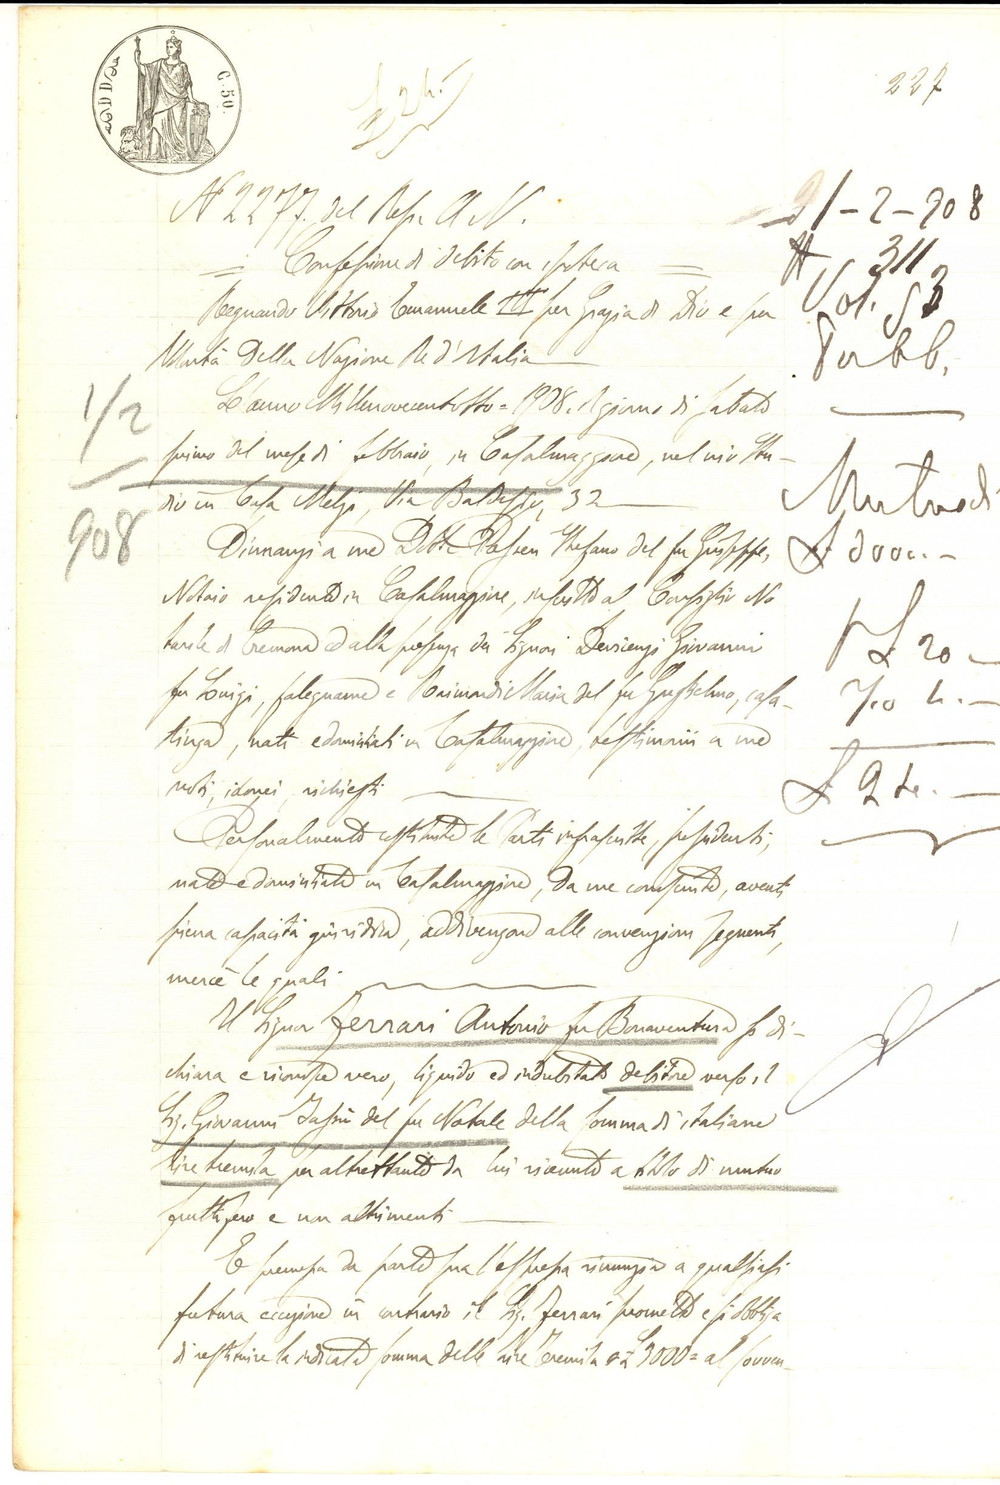 C. 50.
227
N 2277. del Rep. A N.
Confessione di debito con ipoteca
Regnando Vittorio Emanuele III per Grazia di Dio e per
Volontà della Nazione Re d'Italia
L'anno Millenovecentotto = 1908. il giorno di Sabato
primo del mese di febbraio, in Casalmaggiore, nel mio Stu-
dio in Casa Melzi, Via Baldesio, 32
Dinnanzi a me Dott. Stefano del fu Giuseppe,
Notaio residente in Casalmaggiore, inscritto al Consiglio No
tarile di Cremona ed alla presenza dei Signori Giovanni
fu Luigi, falegname e Raimondi Maria del fu Guglielmo, casa-
linga, nati e domiciliati in Casalmaggiore, testimonii a me
noti, idonei, richiesti
Personalmente costituite le Parti infrascritte, possidenti,
nate e domiciliate in Casalmaggiore, da me conosciute, aventi
piena capacità giuridica, addivengono alle convenzioni seguenti,
mercè le quali
Il Signor Ferrari Antonio fu Bonaventura si di-
chiara e riconosce vero, liquido ed indubitato debitore verso il
Sig. Giovanni del fu Natale della somma di italiane
lire tremila per altrettante da lui ricevute a titolo di mutuo
fruttifero e non altrimenti
E premessa da parte sua l'espressa rinunzia a qualsiasi
futura eccezione in contrario il Sig. Ferrari promette e si obbliga
di restituire la indicata somma delle Lire Tremila = L 3000 = al sovven-
1/2
908
1-2-908
N 311
Vol. 53
Pubb.
Mutuo di
£ 3000. -
£ 20 -
7.0 4. -
£ 24. -